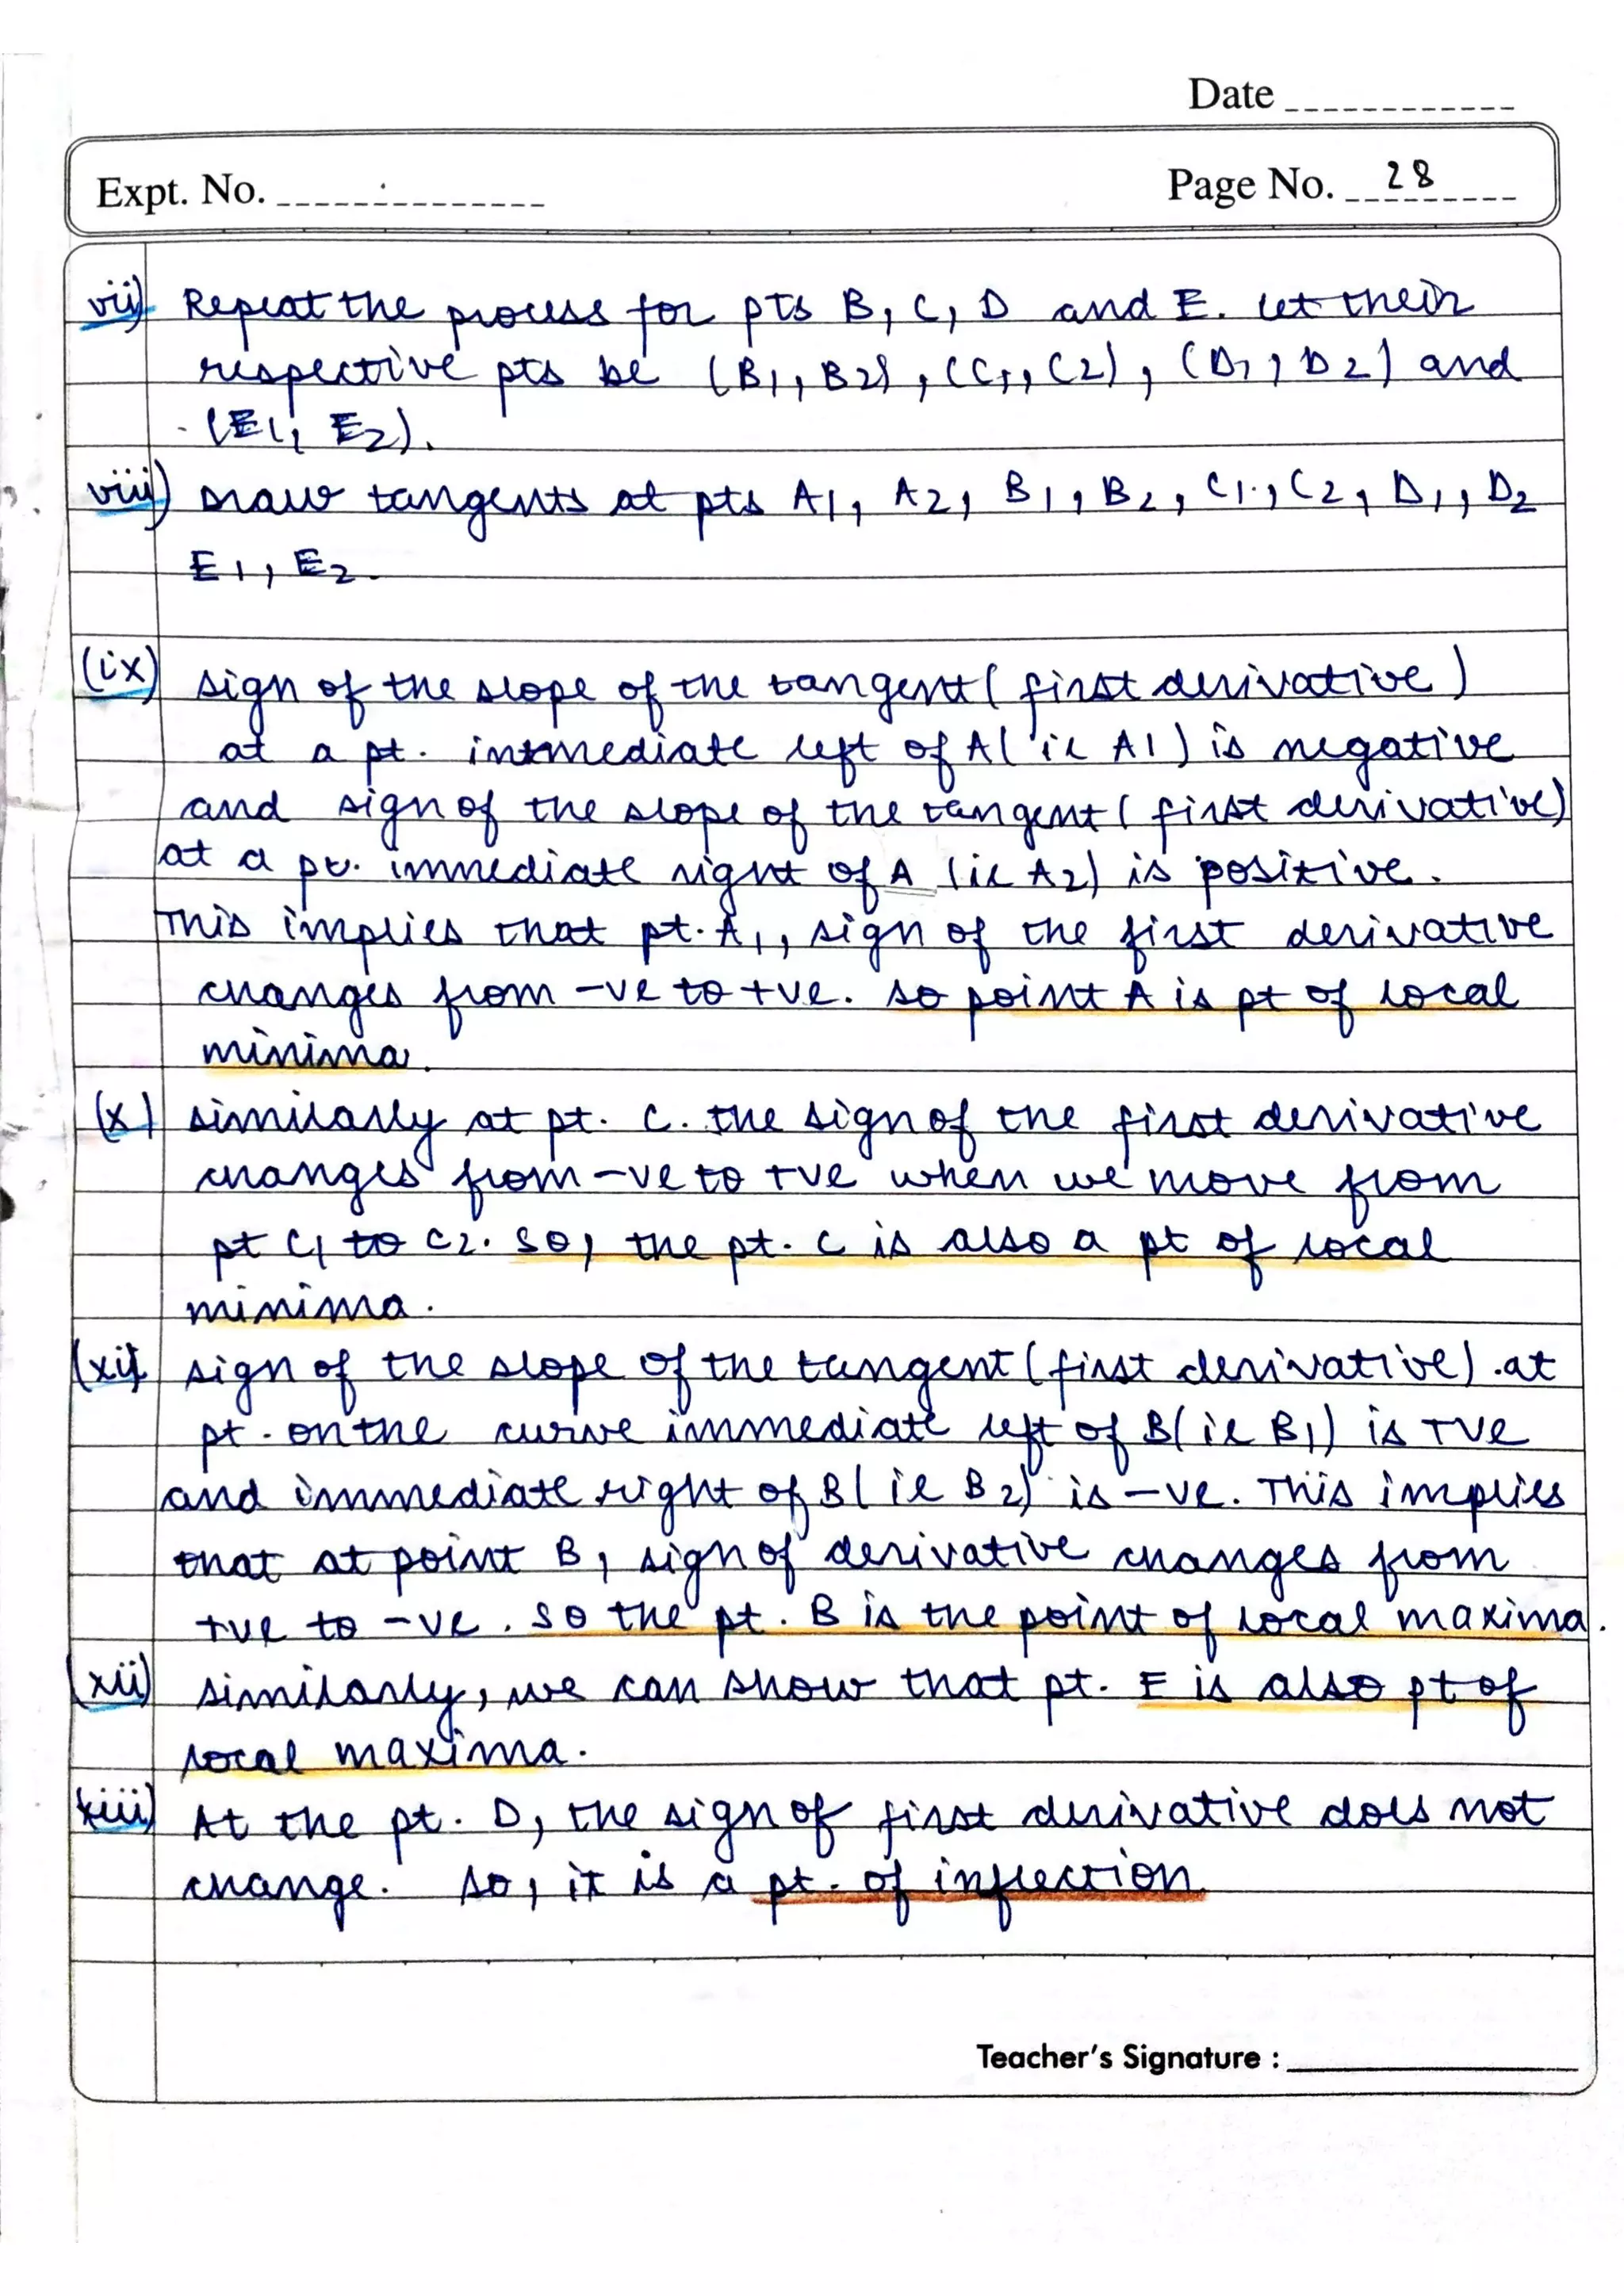 Date
Expt. No.
Page No. 28
vii) Repeat the process for pts B, C, D and E. let their
respective pts be (B1, B2), (C1, C2), (D1, D2) and
(E1, E2).
viii) Draw tangents at pts A1, A2, B1, B2, C1, C2, D1, D2
E1, E2.
(ix) sign of the slope of the tangent (first derivative)
at a pt. intmediate left of A (ie A1) is negative
and sign of the slope of the tangent (first derivative)
at a pt. immediate right of A (ie A2) is positive.
This implies that pt. A1, sign of the first derivative
changes from -ve to +ve. so point A is pt of local
minima.
(x) similarly at pt. C. the sign of the first derivative
changes from -ve to +ve when we move from
pt C1 to C2. So, the pt. C is also a pt of local
minima.
(xi) sign of the slope of the tangent (first derivative). at
pt. on the curve immediate left of B (ie B1) is +ve
and immediate right of B (ie B2) is -ve. This implies
that at point B, sign of derivative changes from
+ve to -ve. So the pt. B is the point of local maxima.
(xii) similarly, we can show that pt. E is also pt of
local maxima.
xiii) At the pt. D, the sign of first derivative does not
change. so, it is a pt. of inflection
Teacher's Signature :